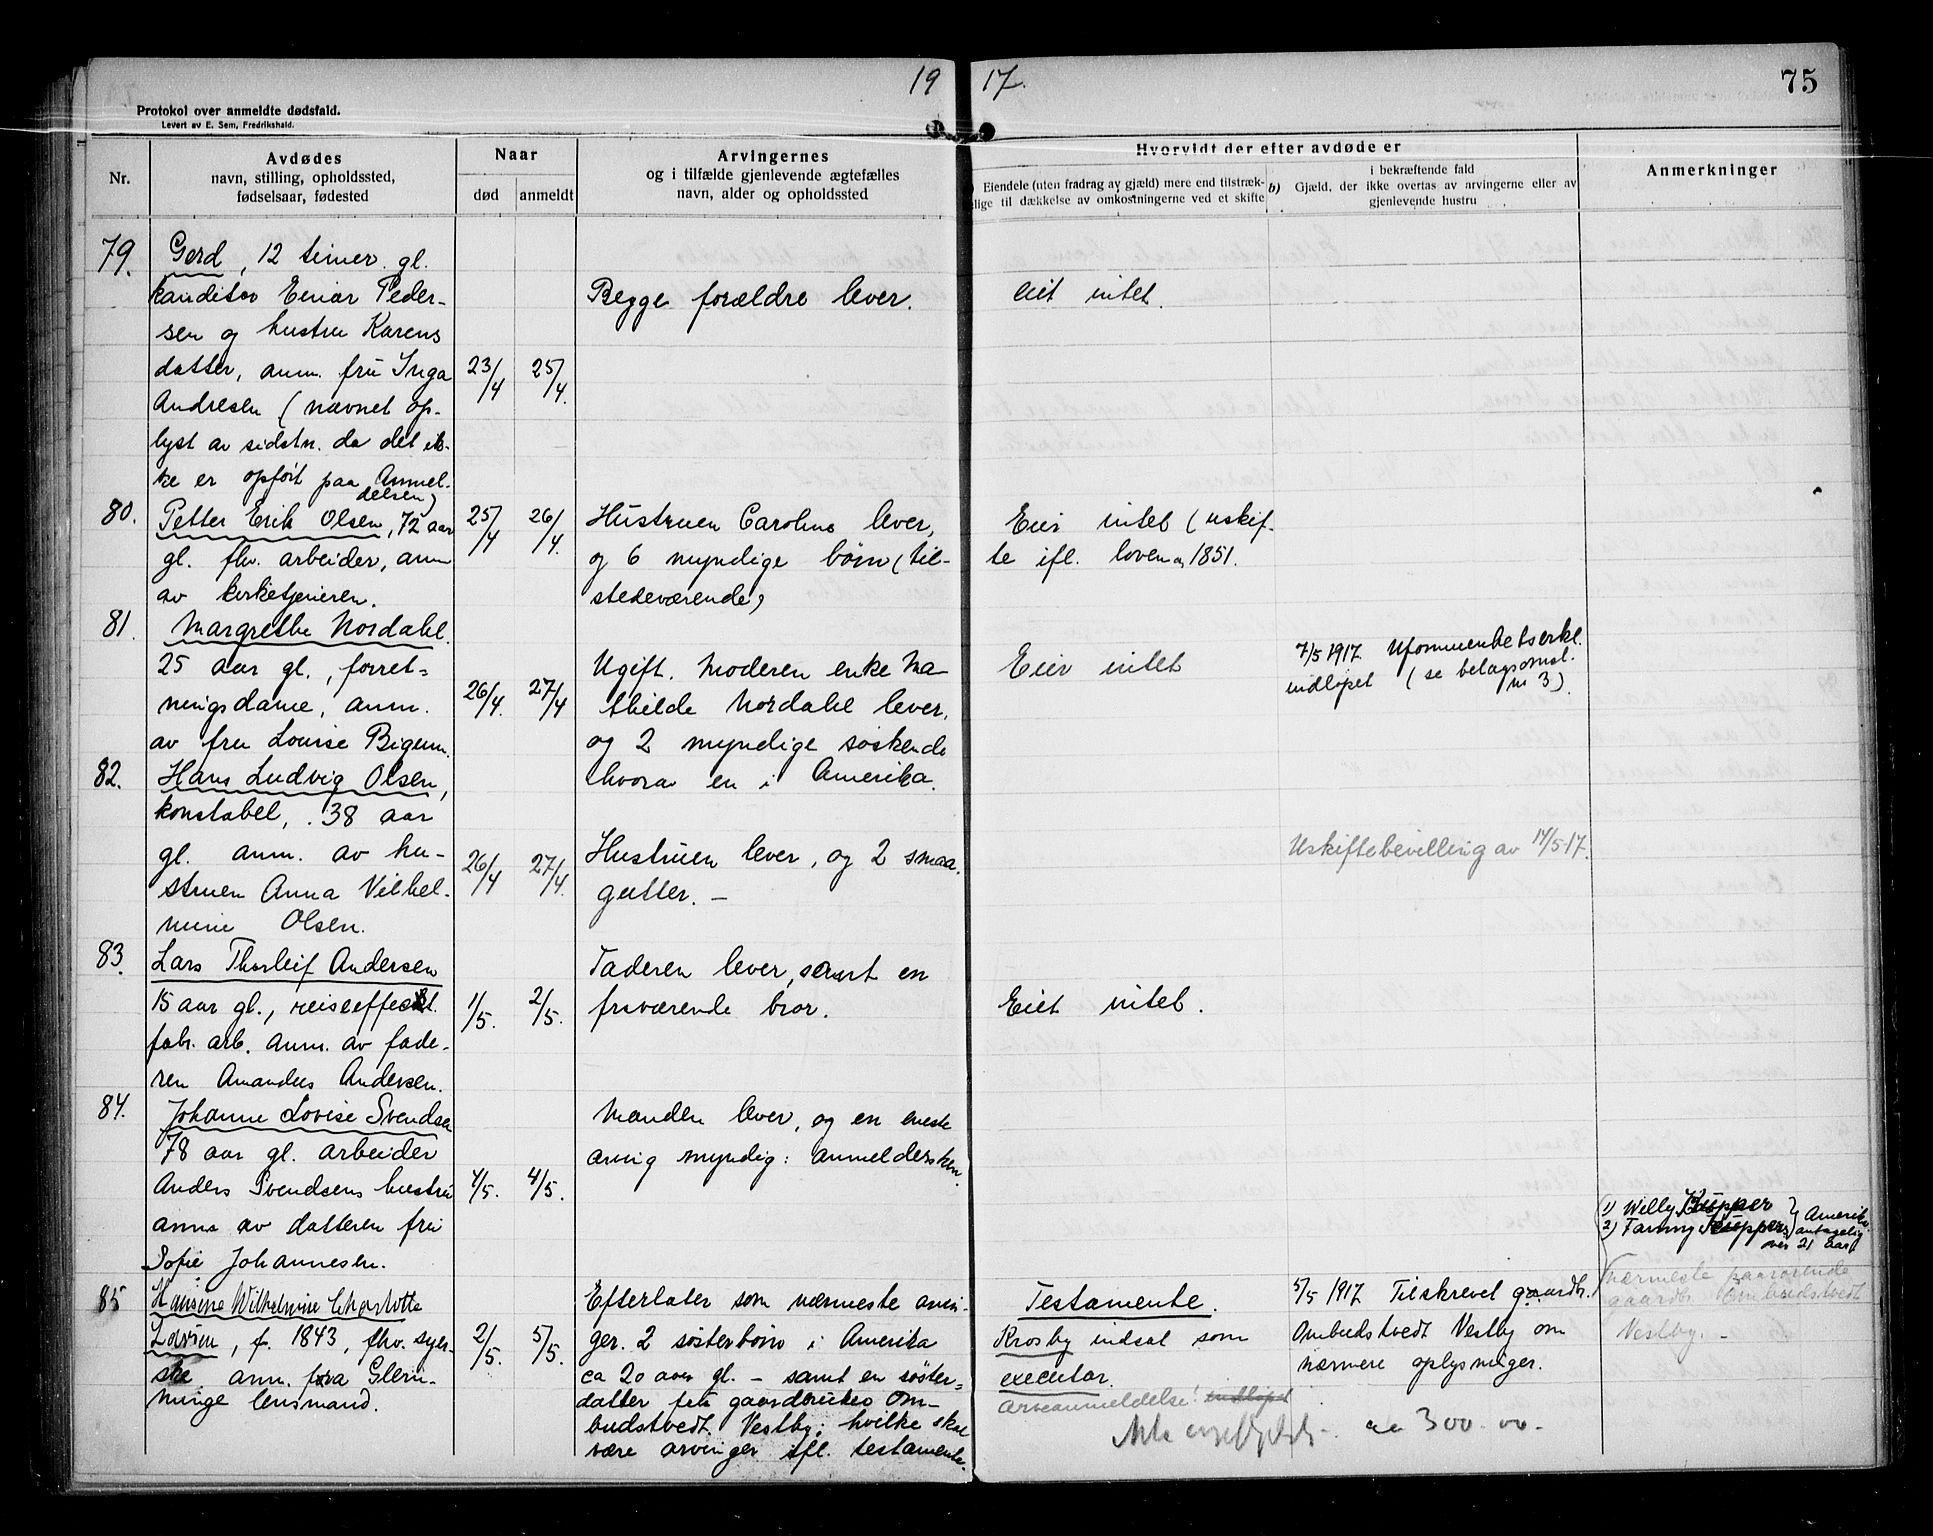 19 17.
75
Protokol over anmeldte dødsfald.
Levert av E. Sem, Fredrikshald.
Nr.
Avdødes
navn, stilling, opholdssted,
fødselsaar, fødested
Naar
død
anmeldt
Arvingernes
og i tilfælde gjenlevende ægtefælles
navn, alder og opholdssted
Hvorvidt der efter avdøde er
Eiendele (uten fradrag av gjæld) mere end tilstræk-
lige til dækkelse av omkostningerne ved et skifte
b)
i bekræftende fald
Gjæld, der ikke overtas av arvingerne eller av
gjenlevende hustru
Anmerkninger
79.
Gerd, 12 timer. gl.
kanditor Einar Peder-
sen og hustru Karens
datter, anm. frú Inga
Andresen (nævnet op-
lyst av sidstn. da det ik-
ke er opført paa Anmel-
delsen)
23/4
25/4.
Begge forældre lever.
Eiet intet.
80.
Petter Erik Olsen, 72 aar
gl. fhv. arbeider, anm
av kirketjeneren.
25/4
26/4.
Hústruen Caroline lever,
og 6 myndige børn (til-
stedeværende)
Eier intet (uskif-
te ifl. loven av 1851.
81.
Margrethe Nordahl.
25 aar gl., forret-
ningsdame, anm.
av fru Louise Bigum.
26/4.
27/4
Ugift. Moderen enke Ma-
thilde Nordahl lever,
og 2 myndige søskende
hvorav en i Amerika.
Eier intet
7/5 1917. Uformuenhetserkl.
indløpet (se belagsomsl.
nr 3).
82.
Hans Ludvig Olsen,
konstabel, 38 aar
gl. anm. av hu-
struen Anna Vilhel-
mine Olsen.
26/4
27/4.
Hustruen lever, og 2 smaa
gutter. -
Uskiftebevilling av 14/5-17.
83.
Lars Thorleif Andersen
15 aar gl., reiseeffekt.
fabr. arb. anm. av fade-
ren Amandus Andersen.
1/5.
2/5.
Faderen lever, samt en
fraværende bror.
Eiet intet.
84.
Johanne Lovise Svendsen
78 aar gl. arbeider
Anders Svendsens hustrú
anm av datteren frú
Sofie Johannesen.
4/5.
4/5.
Manden lever, og en eneste
arving myndig: anmeldersken.
85
Hansine Wilhelmine Charlotte
Larsen, f. 1843, fhv. syer-
ske anm. fra Glem-
minge lensmand.
2/5.
5/5.
Efterlater som nærmeste arvin-
ger. 2 søsterbørn i Amerika
ca 20 aar gl. - samt en søster-
datter frú gaardbruker Om-
budstvedt. Vestby; hvilke skal
være arvinger ifl. testamente.
Testamente.
Krosby indsat som
executor.
Arveanmeldelse! indløpet
5/5 1917 Tilskrevet gaardbr.
Ombudstvedt Vestby om
nærmere oplysninger.
300.00-
1) Willy Küpper
2) Fanny Küppers
Amerika
antagelig
over 21 aar.
nærmeste paarørende
gaardbr Ombudstvedt
Vestby. -